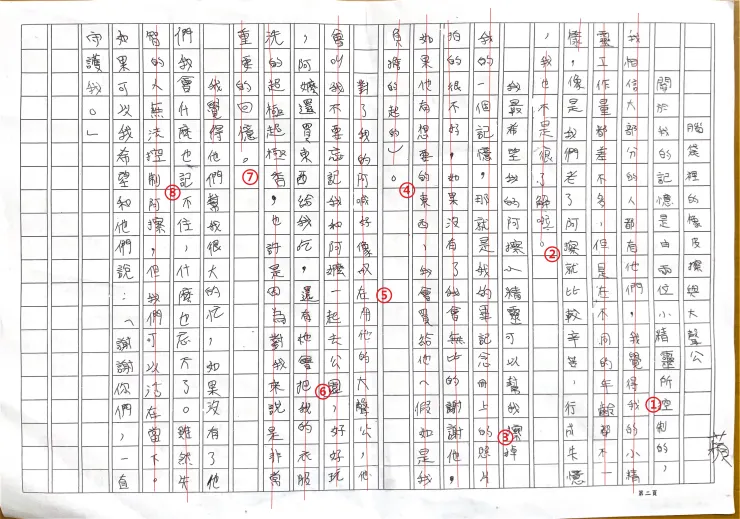 蘋
腦袋裡的像皮擦與大聲公
關於我的記憶是由兩位小精靈所空制的，
我相信大部分人都有他們，我覺得我的小精
靈工作量都差不多，但是在不同的年齡都不一
樣，像是我們老了阿擦就比較辛苦，行成失憶
，我也不是很了解啦。
我最希望我的阿擦小精靈可以幫我擦掉
我的一個記憶，那就是我的畢記念冊上的照片
拍的很不好，如果沒有了我會無比的謝謝他，
如果他有想要的東西，我會買給他（假如是我
負擔的起的）。
對了我的阿好像在用他的大聲公，他
會叫我不要忘記我和阿嬤一起去公園，好好玩
，阿嬤還買東西給我吃，還有他會把我的衣服
洗的起極起極香，也許是因為對我來說是非常
重要的回憶。
我覺得他們幫我很大的忙，如果沒有了他
們我會什麼也記不住，什麼也忘不了。雖然失
智的人無法控制阿擦，但我們可以活在當下。
如果可以我希望和他們說：「謝謝你們，一直
守護我。」
①
②
③
④
⑤
⑥
⑦
⑧
第二頁